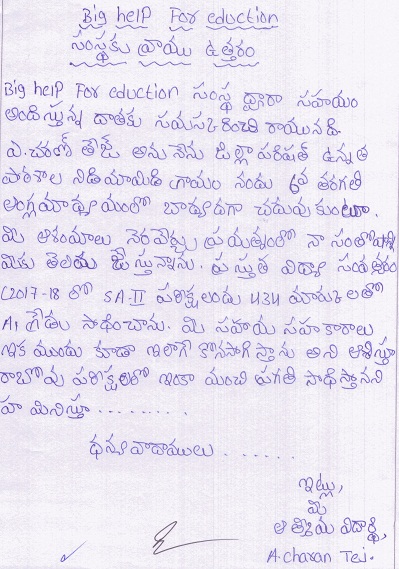 Big help For eduction
సంస్థకు వ్రాయు ఉత్తరం
Big help For eduction సంస్థ ద్వారా సహయం
అందిస్తున్న దాతకు నమస్కరించి రాయునది
ఎ. చరణ్ తేజ్ అను నేను జిల్లా పరిషత్ ఉన్నత
పాఠశాల నిడియామిడి గ్రామం నందు 6వ తరగతి
ఆంగ్లమాధ్యమంలో బాధ్యదగా చదువుకుంటూ.
మీ ఆశయాలు నెరవేర్చు ప్రయత్నంలో నా సంతోషాన్ని
మీకు తెలియ జేస్తున్నాను. ప్రస్తుత విద్యా సంవత్సరం
(2017-18 లో SA-II పరీక్షలందు 434 మార్కులతో
A1 గ్రేడు సాధించాను. మీ సహయ సహకారాలు
ఇక ముందు కూడా ఇలాగే కొనసాగిస్తారు అని ఆశిస్తూ
రాబోవు పరీక్షలలో ఇంకా మంచి ప్రగతి సాధిస్తానని
హమినిస్తూ .........
ధన్యవాదాములు ......
ఇట్లు,
మీ
ఆత్మీయ విదార్థి,
A. charan Tej.